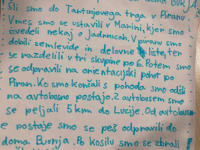 Šli smo do Tartinijevega trga v Piranu
Vmes smo se ustavili v Monfini, kjer smo
izvedeli nekaj o Jadranicah. V Piranu smo
dobili zemljevide in delovne liste, ter
se razdelili v tri skupine po 6. Potem smo
se odpravili na orientacijski pohod po
Piran. Ko smo končali s pohodo smo odšli
na avtobusno postajo. Z avtobusom smo
se peljali 5 km do Lucije. Od avtobusne
postaje smo se peš odpravili do
doma Burja. Po kosilu smo se zbrali